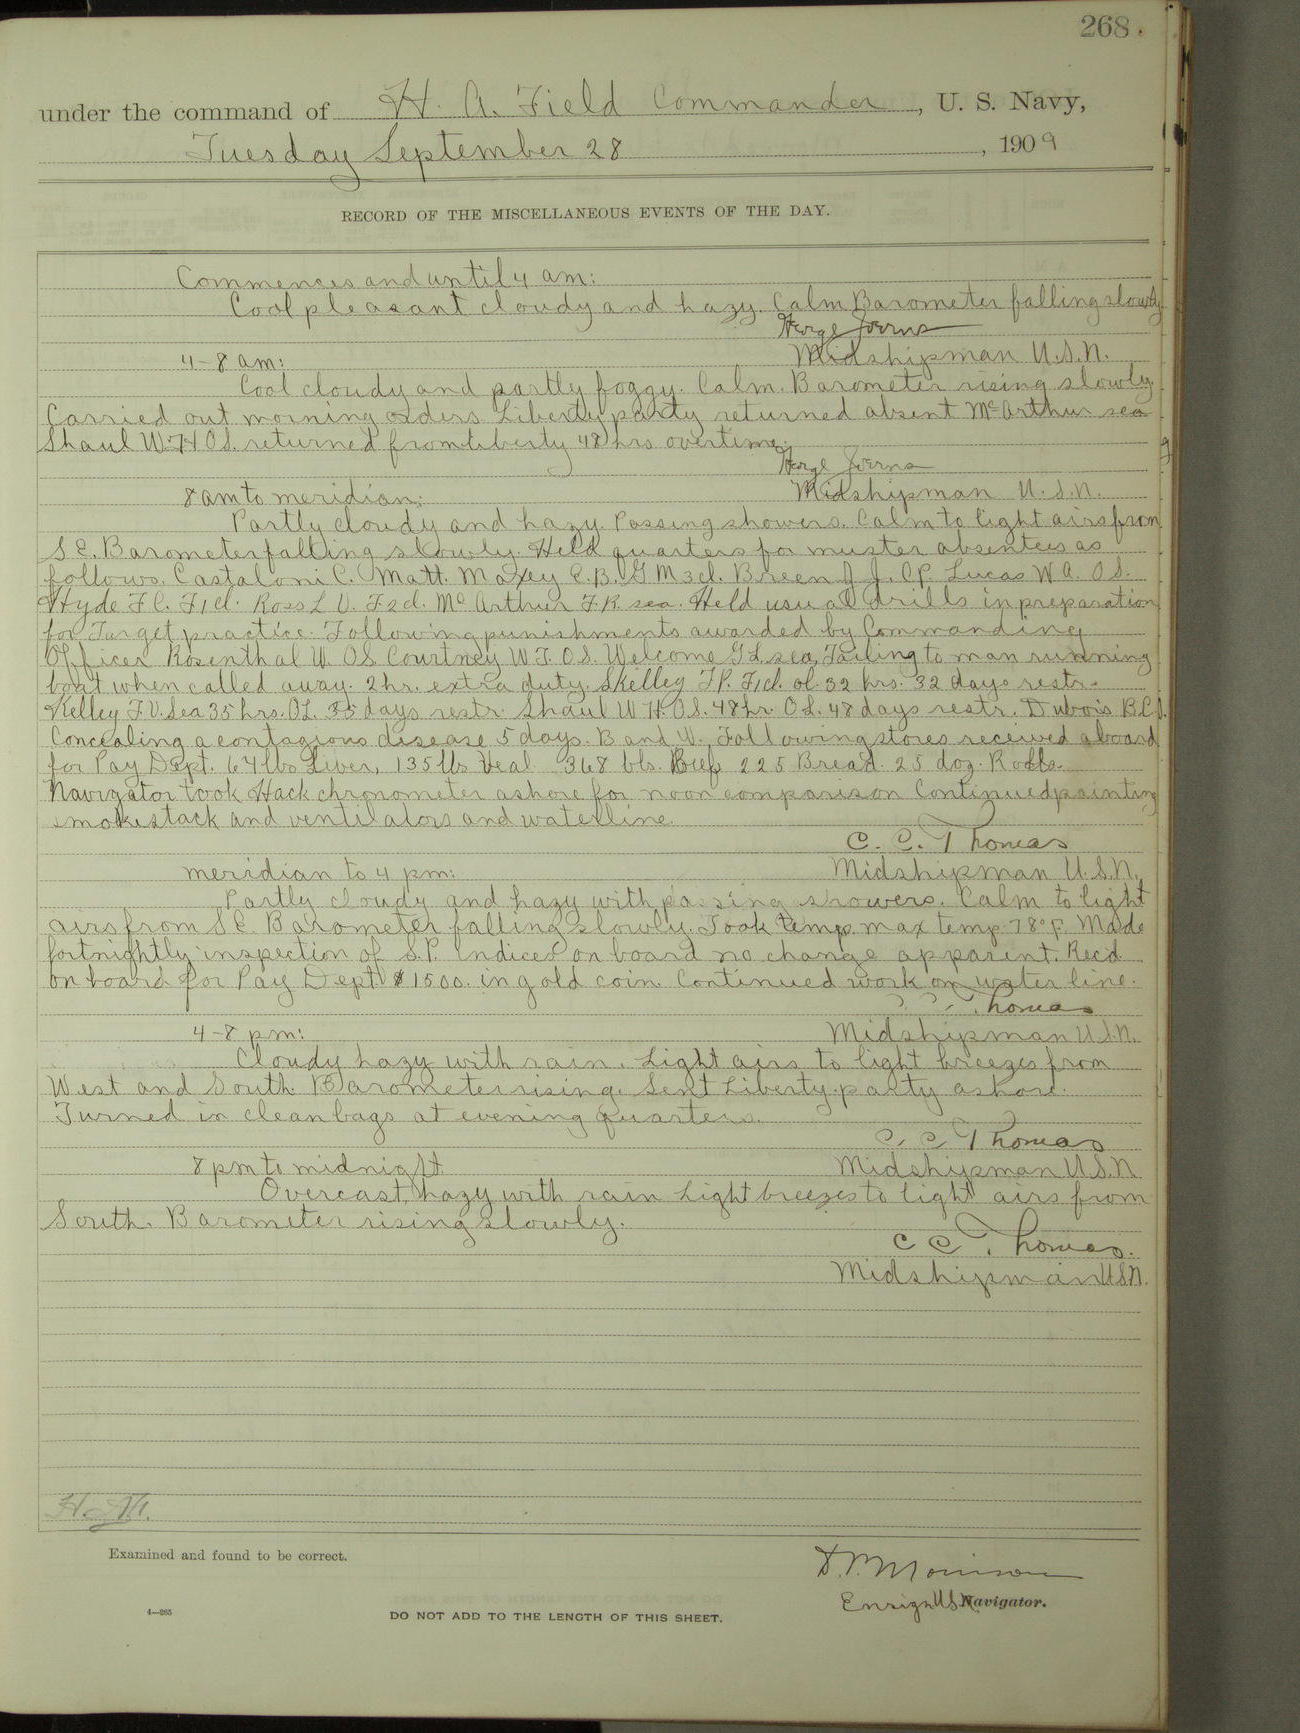 268.
under the command of H. A. Field Commander, U. S. Navy,
Tuesday September 28, 1909
RECORD OF THE MISCELLANEOUS EVENTS OF THE DAY.
Commences and until 4 am:
Cool pleasant cloudy and hazy. Calm Barometer falling slowly
4-8 am:
Midshipman U.S.N.
Cool cloudy and partly foggy. Calm. Barometer rising slowly.
Carried out morning orders Liberty party returned absent McArthur sea
Shaul W.H O.S. returned from liberty 48 hrs overtime.
8 am to meridian:
Midshipman U.S.N.
Partly cloudy and hazy. Passing showers. Calm to light airs from
S.E. Barometer falling slowly. Held quarters for muster absentees as
follows. Castaloni C. Matt. Maxey E.B. G M 3cl. Breen J J. C.P. Lucas W A. O S.
Hyde F.C. F1cl. Ross L V. F2cl. McArthur F.R. sea. Held usual drills in preparation
for Target practice. Following punishments awarded by Commanding
Officer Rosenthal W. OS Courtney W.T. O.S. Welcome G L. sea, Failing to man running
boat when called away. 2 hr. extra duty. Skelley J P. F1cl. ol. 32 hrs. 32 days restr.
Kelley F.V. Sea 35 hrs. OL. 35 days restr. Shaul W H. O.S. 48 hr O L. 48 days restr. Dubois B.L.
Concealing a contagious disease 5 days. B and W. Following stores received aboard
for Pay Dept. 67 lbs Liver, 135 lbs Veal 368 lbs. Beef 225 Bread. 25 doz. Rolls.
Navigator took Hack chronometer ashore for noon comparison Continued painting
smokestack and ventilators and waterline.
C. C. Thomas
meridian to 4 pm:
Midshipman U.S.N.
Partly cloudy and hazy with passing showers. Calm to light
airs from S.E. Barometer falling slowly. Took temp. max temp. 78° F. Made
fortnightly inspection of S.P. Indices on board no change apparent. Rec'd
on board for Pay Dept. $1500. in gold coin Continued work on water line.
C. C. Thomas
4-8 pm:
Midshipman U.S.N.
Cloudy hazy with rain. Light airs to light breezes from
West and South Barometer rising. Sent Liberty party ashore.
Turned in clean bags at evening quarters.
C. C. Thomas
8 pm to midnight
Midshipman U.S.N
Overcast, hazy with rain Light breezes to light airs from
South. Barometer rising slowly.
C C Thomas.
Midshipman U.S.N.
Examined and found to be correct.
Ensign U.S.N Navigator.
4—265
DO NOT ADD TO THE LENGTH OF THIS SHEET.